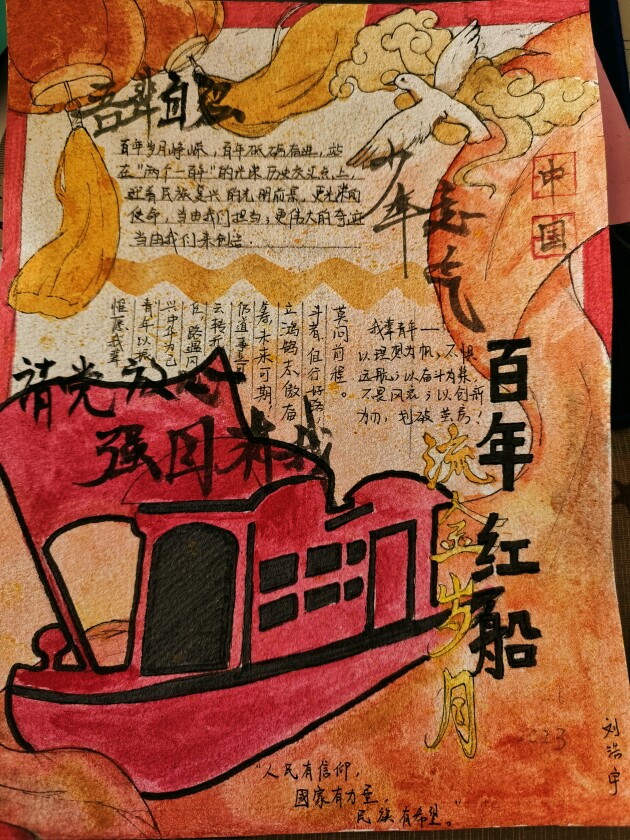 吾辈自强
百年岁月峥嵘，百年砥砺奋进，站
在"两个一百年"的光荣历史交汇点上，
迎着民族复兴的光明前景，更光荣的
使命，当由我们担当；更伟大的奇迹
当由我们来创造.
少年志气
中
国
莫问前程。
斗者但行好路
立鸿鹄志做奋
春，未来可期！
仍道事事可
云转开
任，路遇风
兴中华为己
青年以振
惟愿我辈
我辈青年——
以理想为帆，不惧
远航；以奋斗为桨，
不畏风浪；以创新
为刃，划破苍穹！
请党放心
强国有我
百年红船
流金岁月
2023
刘浩宇
"人民有信仰，
國家有力量，
民族有希望。"